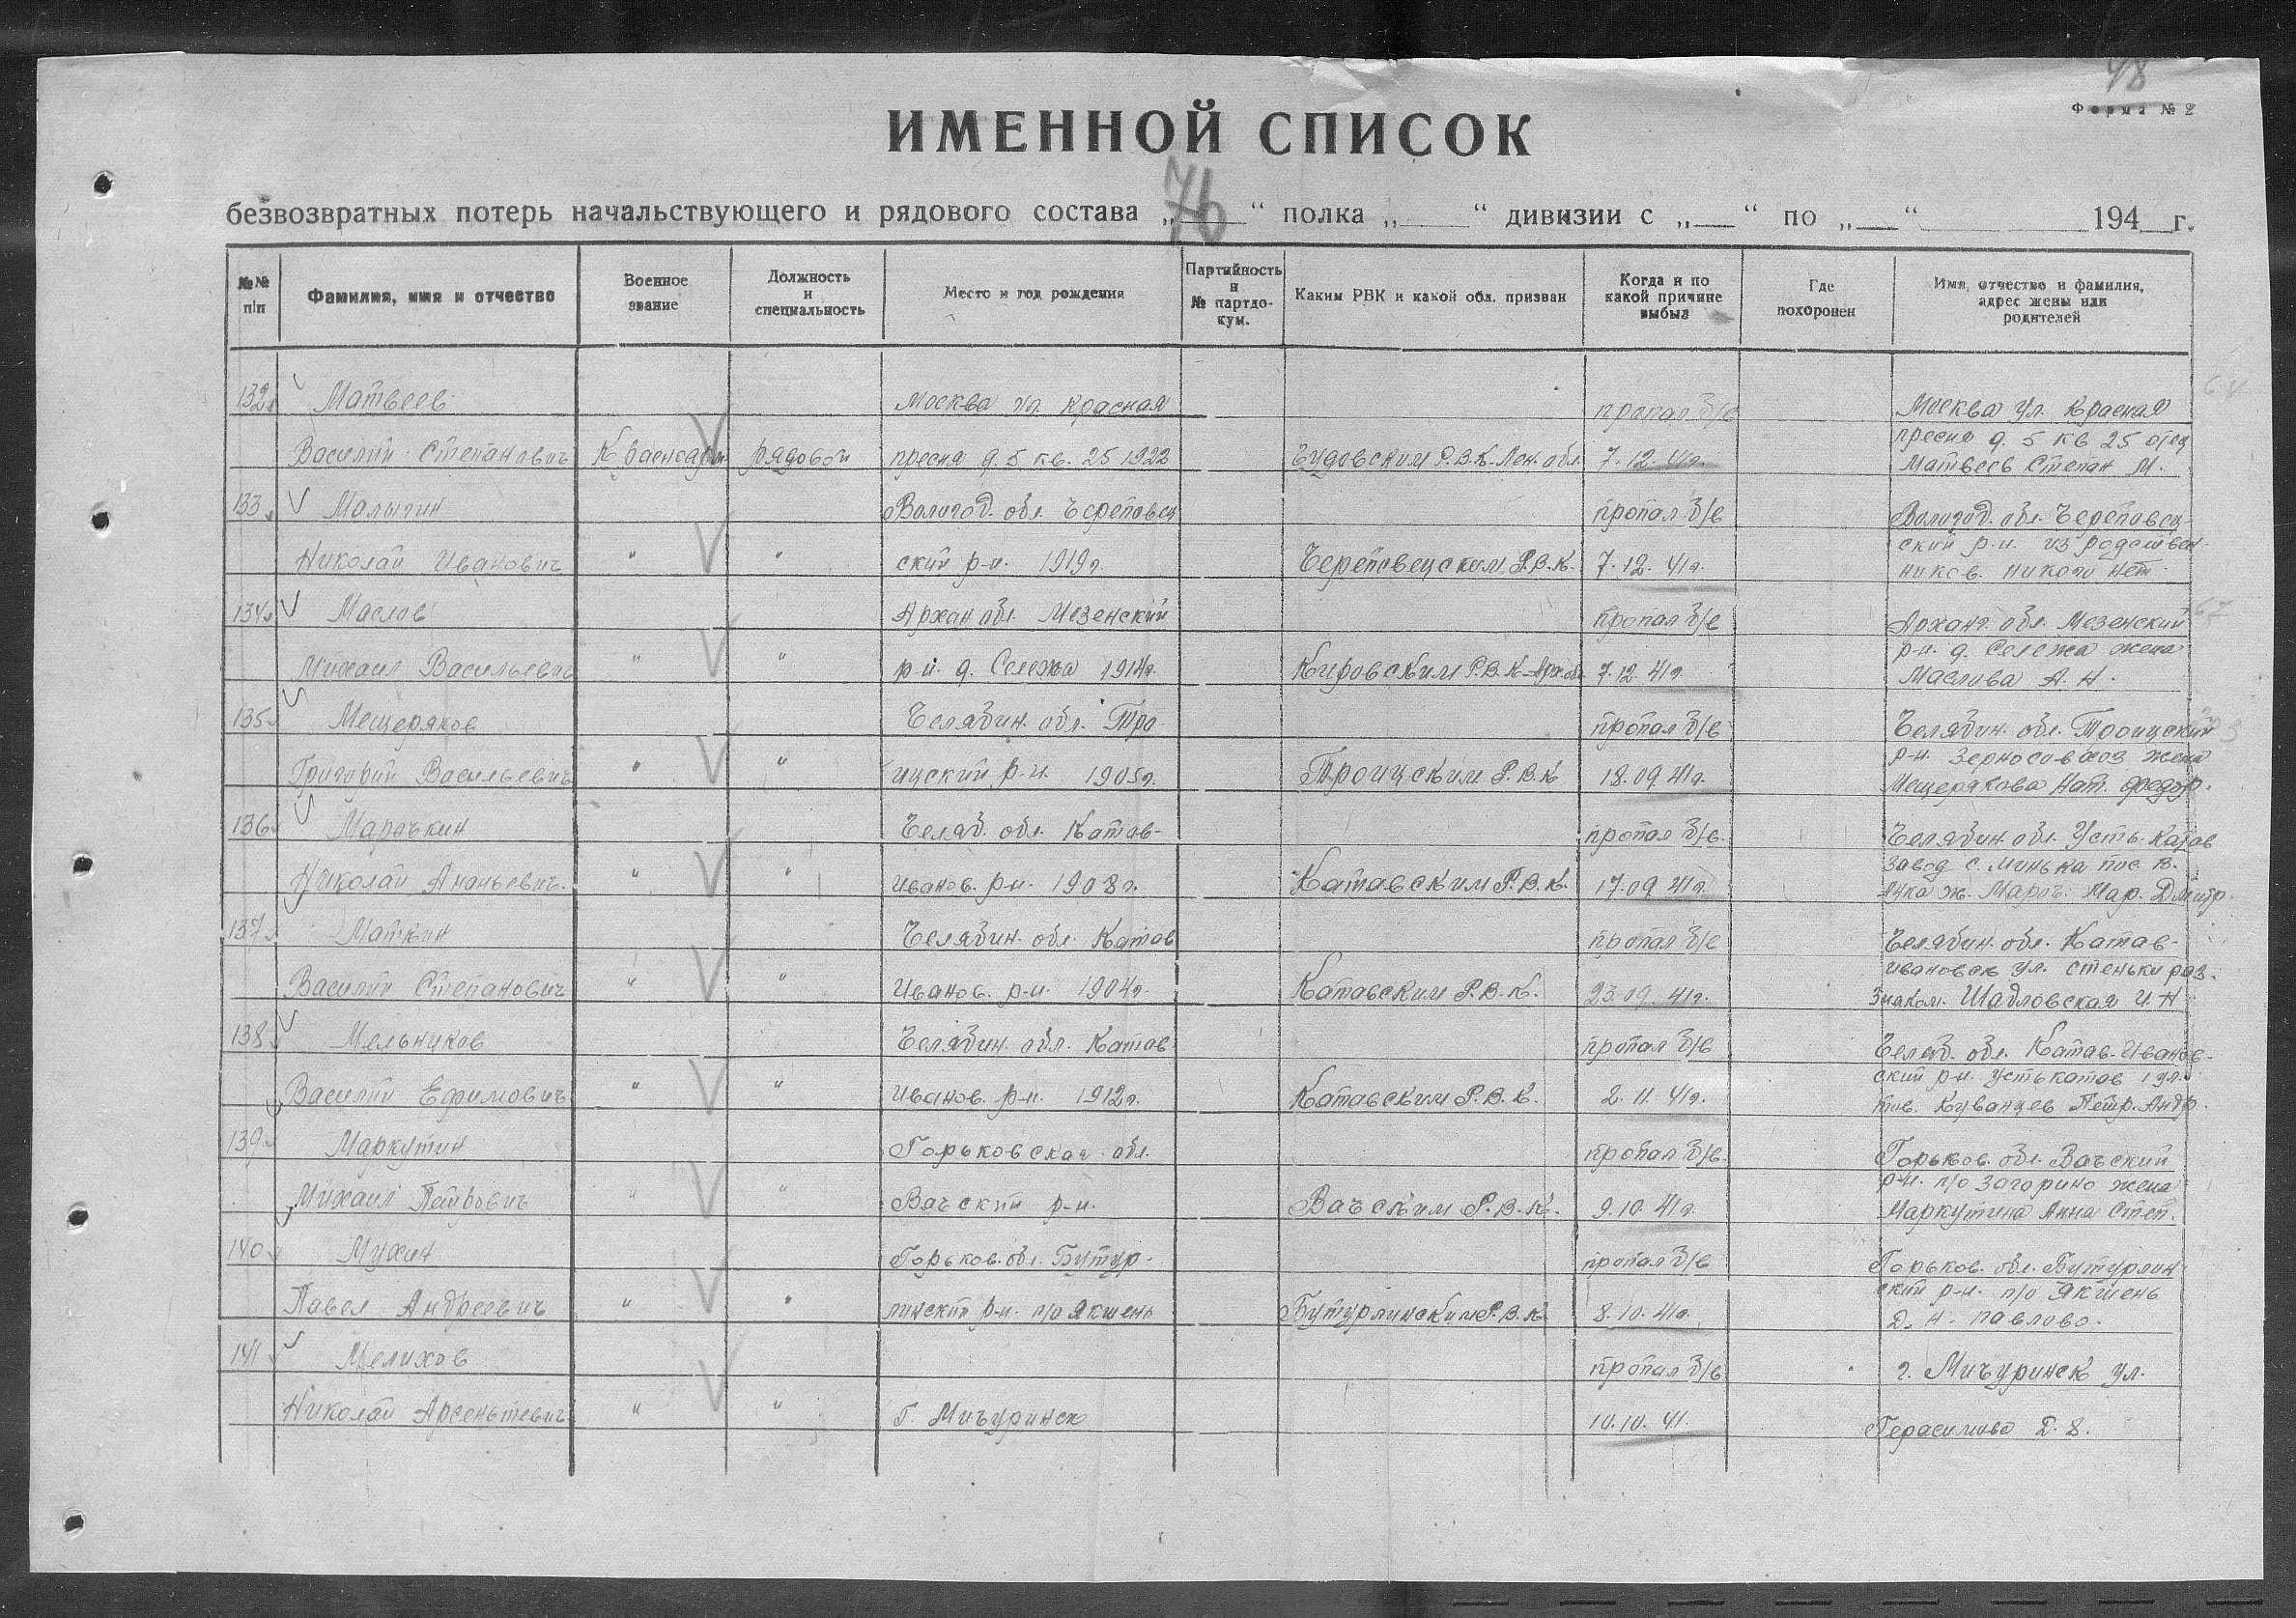 48
Форма № 2
ИМЕННОЙ СПИСОК
безвозвратных потерь начальствующего и рядового состава „ 76 “ полка „ “ дивизии с „ “ по „ “ 194 г.
№№ п/п | Фамилия, имя и отчество | Военное звание | Должность и специальность | Место и год рождения | Партийность и № партдокум. | Каким РВК и какой обл. призван | Когда и по какой причине выбыл | Где похоронен | Имя, отчество и фамилия, адрес жены или родителей
132 Матвеев Москва ул. Красная пропал б/в Москва ул. Красная
пресня д. 5 кв 25 отец
Василий Степанович Красноарм. рядовой пресня д. 5 кв. 25 1922 Чудовским Р.В.К. Лен. обл. 7.12.41г. Матвеев Степан М.
133 Малыгин Вологод. обл. Череповец пропал б/в Вологод. обл. Череповец-
ский р-н. из родствен-
Николай Иванович " " ский р-н. 1919г. Череповецским Р.В.К. 7.12.41г. ников никого нет
134 Маслов Архан обл. Мезенский пропал б/в Арханг. обл. Мезенский
р-н. д. Сележа жена
Михаил Васильевич " " р-н. д. Сележа 1914г. Кировским Р.В.К. Арх. об. 7.12.41г. Маслова А. Н.
135 Мещеряков Челябин. обл. Тро- пропал б/в Челябин. обл. Троицский
р-н. Зерносовхоз жена
Григорий Васильевич " " ицский р-н. 1905г. Троицским Р.В.К. 18.09.41г. Мещерякова Нат. Федор.
136 Марочкин Челяб. обл. Катав- пропал б/в. Челябин. обл. Усть-Катав
завод с. Минька пос. В.
Николай Ананьевич. " " Иванов. р-н. 1908г. Катавским Р.В.К. 17.09.41г. Лука ж. Мароч. Мар. Дмитр.
137 Маткин Челябин. обл. Катав пропал б/в Челябин. обл. Катав-
Ивановск ул. Стеньки раз.
Василий Степанович " " Иванов. р-н. 1904г. Катавским Р.В.К. 23.09.41г. Знаком. Шадловская И. Н
138 Мельников Челябин. обл. Катав пропал б/в Челяб. обл. Катав-Иванов-
ский р-н. Усть катав 1 ул.
Василий Ефимович " " Иванов. р-н. 1912г. Катавским Р.В.К. 2.11.41г. тов. Куванцев Петр. Андр.
139 Маркутин Горьковская обл. пропал б/в. Горьков. обл. Вачский
р-н. п/о Загорино жена
Михаил Петрович " " Вачский р-н. Вачским Р.В.К. 9.10.41г. Маркутина Анна Степ.
140 Мухин Горьков. обл. Бутур- пропал б/в Горьков. обл. Бутурлин
ский р-н. п/о Якшень
Павел Андреевич " " линский р-н. п/о Якшень Бутурлинским Р.В.К. 8.10.41г. Д. Н. Павлово.
141 Мелихов пропал б/в г. Мичуринск ул.
Николай Арсентьевич " " Г. Мичуринск 10.10.41. Герасимова Д. 8.